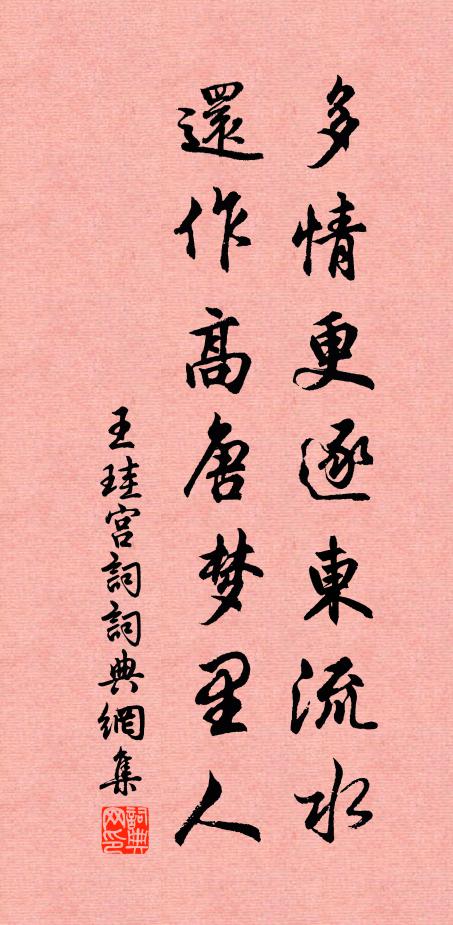 多情更逐東流水
還作高唐梦里人
王珪宫詞詞典網集
詞典网印